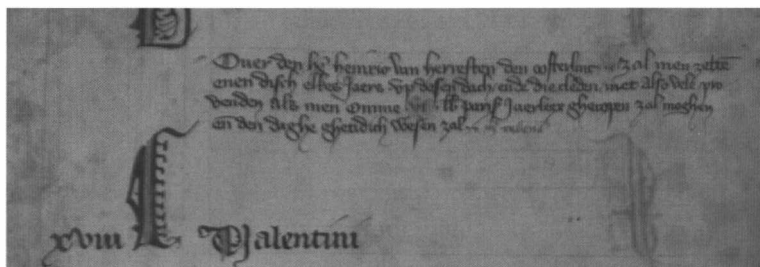 Ouer den hē heinric van herresten den oosterlinc zal men zetten
enen disch elkes Jaers vp desen dach ende die cleden met also vele pro
venden als men omme lb parys Jaerlixx ghecopen zal moghen
en den daghe ghetidich wesen zal
xviii Valentini